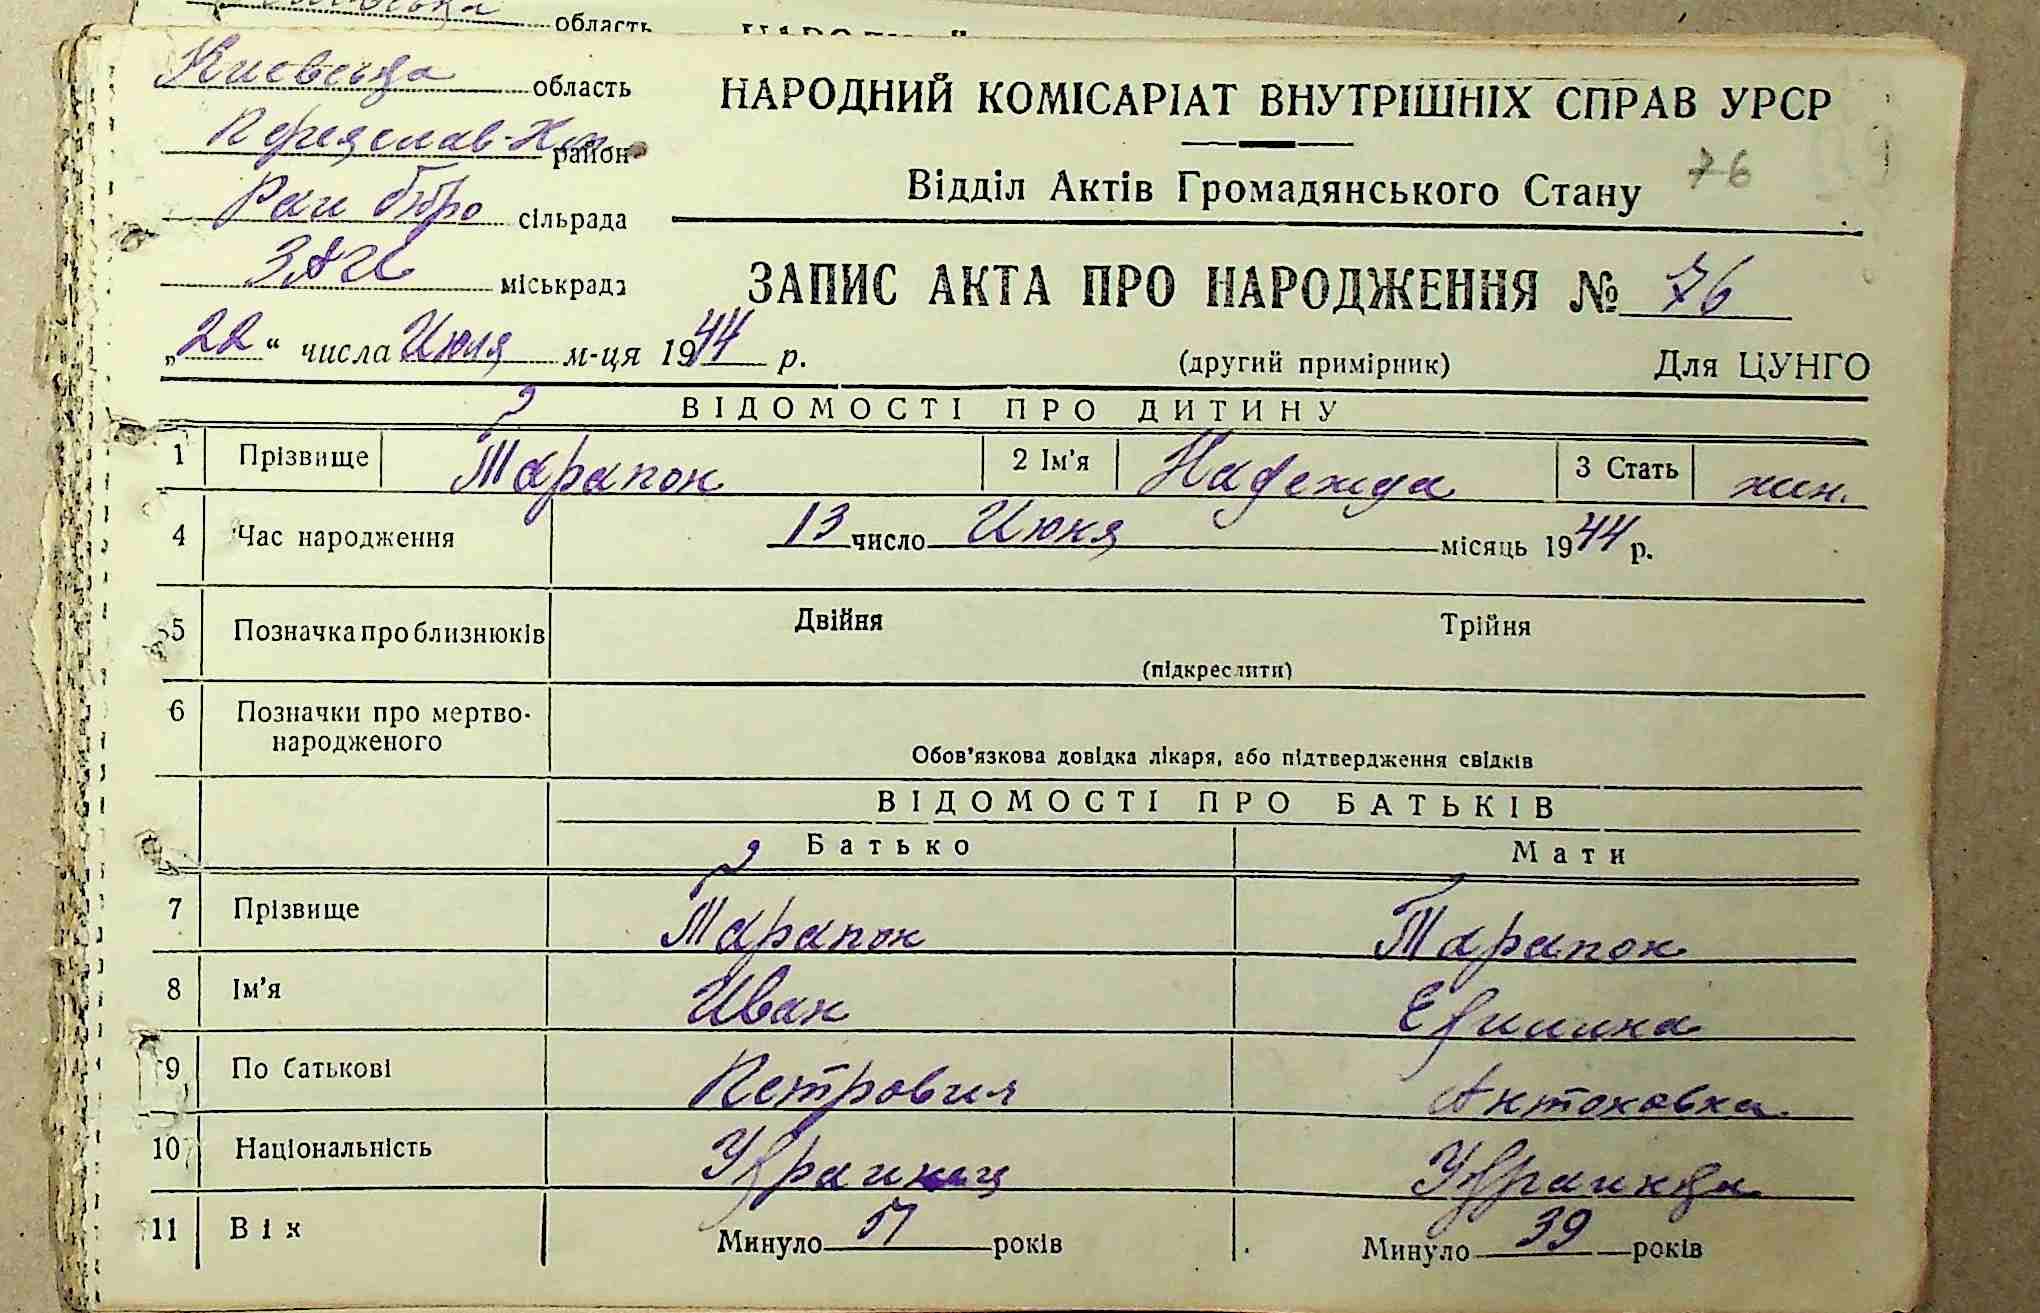 область
Киевська область
НАРОДНИЙ КОМІСАРІАТ ВНУТРІШНІХ СПРАВ УРСР
Переяслав-Хм район
76
Відділ Актів Громадянського Стану
Рай бюро сільрада
ЗАГС міськрада
ЗАПИС АКТА ПРО НАРОДЖЕННЯ № 76
„22“ числа Июля м-ця 1944 р.
(другий примірник) Для ЦУНГО
ВІДОМОСТІ ПРО ДИТИНУ
1 Прізвище Тарапон 2 Ім'я Надежда 3 Стать жин.
4 Час народження 13 число Июня місяць 1944 р.
5 Позначка про близнюків Двійня Трійня
(підкреслити)
6 Позначки про мертво-
народженого
Обов'язкова довідка лікаря, або підтвердження свідків
ВІДОМОСТІ ПРО БАТЬКІВ
Батько Мати
7 Прізвище Тарапон Тарапон
8 Ім'я Иван
9 По батькові Петрович Антоновна
10 Національність Украинец Украинка
11 Вік Минуло 51 років Минуло 39 років